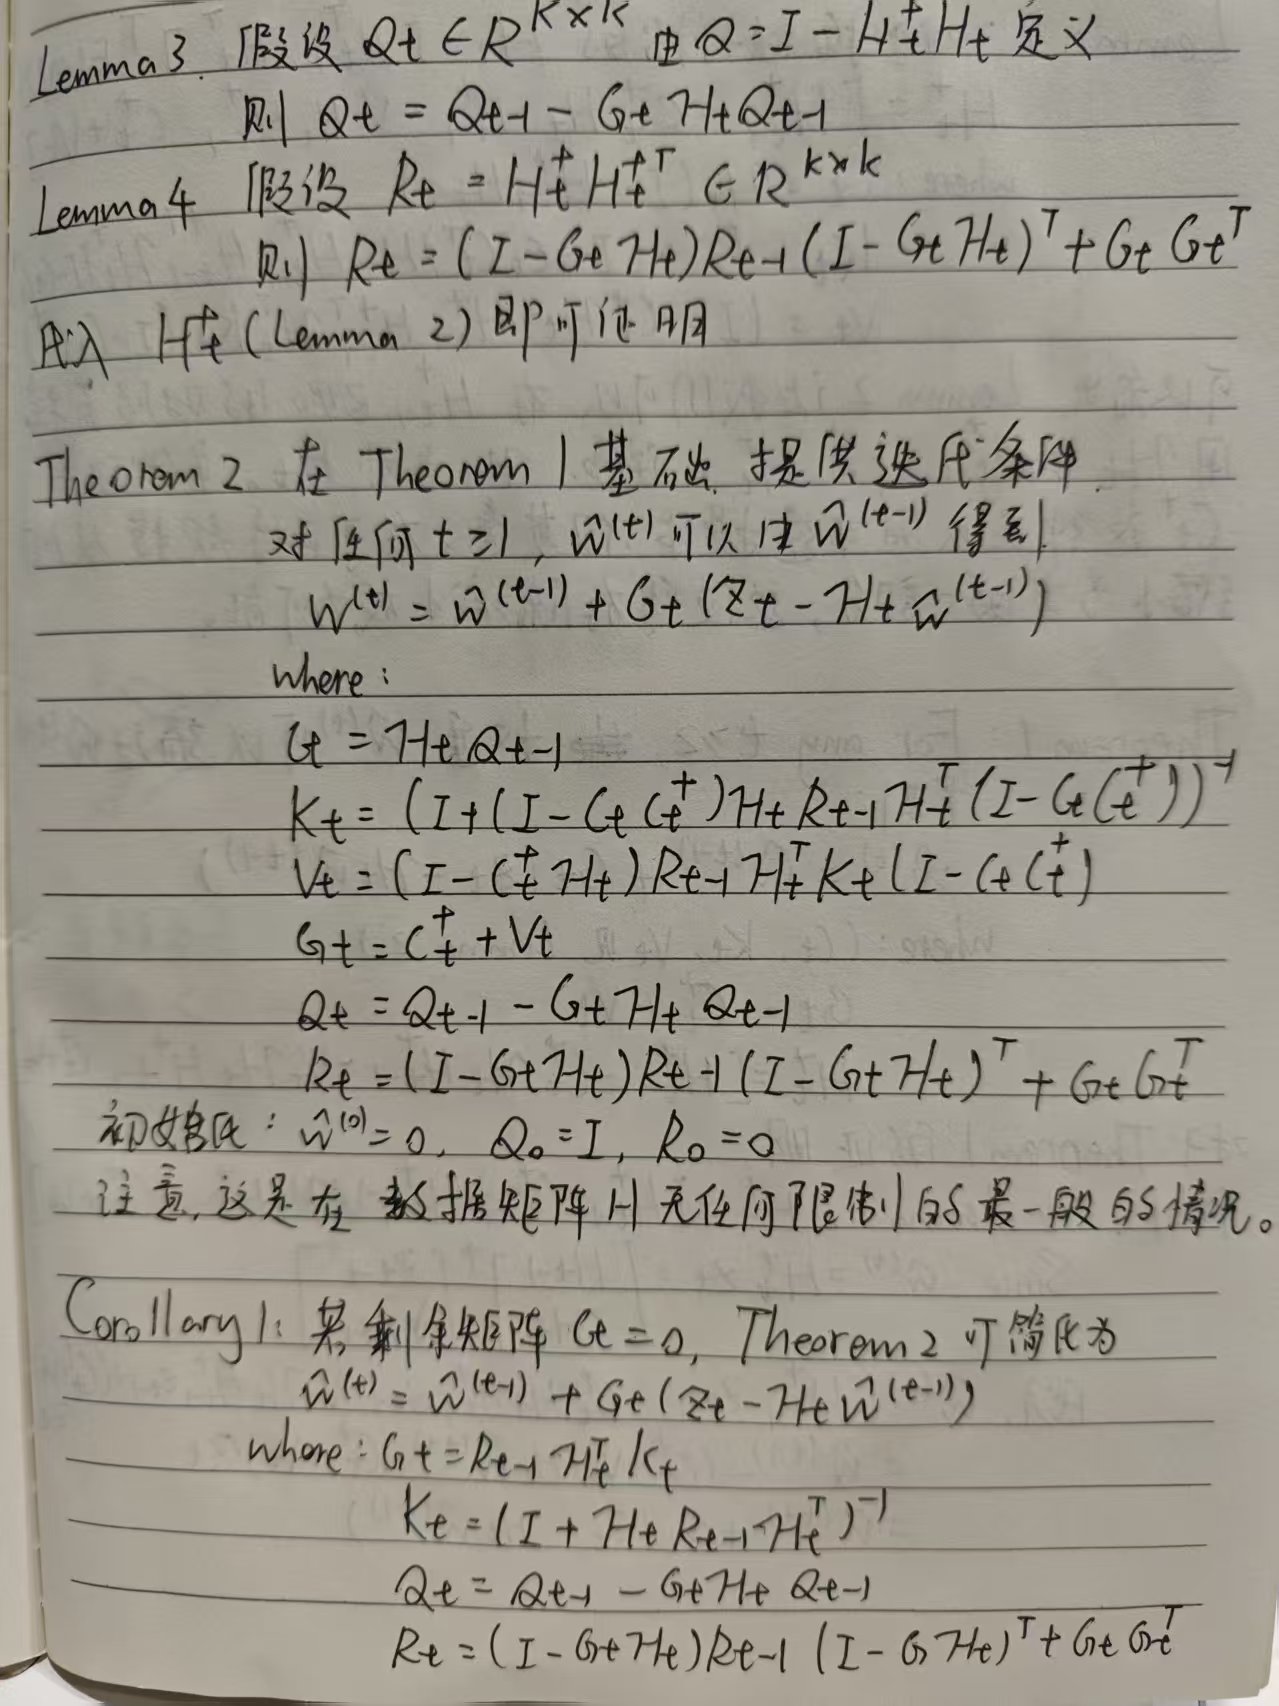 Lemma 3. 假设 Qt ∈ R^{K×K} 由 Q = I - H_t^+ H_t 定义
则 Qt = Qt-1 - Gt ℋt Qt-1
Lemma 4 假设 Rt = H_t^+ H_t^{+T} ∈ R^{K×K}
则 Rt = (I - Gt ℋt) Rt-1 (I - Gt ℋt)^T + Gt Gt^T
代入 H_t^+ (Lemma 2) 即可证明
Theorem 2 在 Theorem 1 基础 提供迭代条件.
对任何 t ≥ 1, ŵ^(t) 可以由 ŵ^(t-1) 得到
W^(t) = ŵ^(t-1) + Gt (Zt - ℋt ŵ^(t-1))
where:
Ct = ℋt Qt-1
Kt = (I + (I - Ct C_t^+) ℋt Rt-1 ℋ_t^T (I - Ct C_t^+))^{-1}
Vt = (I - C_t^+ ℋt) Rt-1 ℋ_t^T Kt (I - Ct C_t^+)
Gt = C_t^+ + Vt
Qt = Qt-1 - Gt ℋt Qt-1
Rt = (I - Gt ℋt) Rt-1 (I - Gt ℋt)^T + Gt G_t^T
初始化: ŵ^(0) = 0, Q0 = I, R0 = 0
注意, 这是在 数据矩阵 H 无任何限制的最一般的情况。
Corollary 1: 若剩余矩阵 Ct = 0, Theorem 2 可简化为
ŵ^(t) = ŵ^(t-1) + Gt (Zt - ℋt ŵ^(t-1))
where: Gt = Rt-1 ℋ_t^T Kt
Kt = (I + ℋt Rt-1 ℋ_t^T)^{-1}
Qt = Qt-1 - Gt ℋt Qt-1
Rt = (I - Gt ℋt) Rt-1 (I - G ℋt)^T + Gt Gt^T